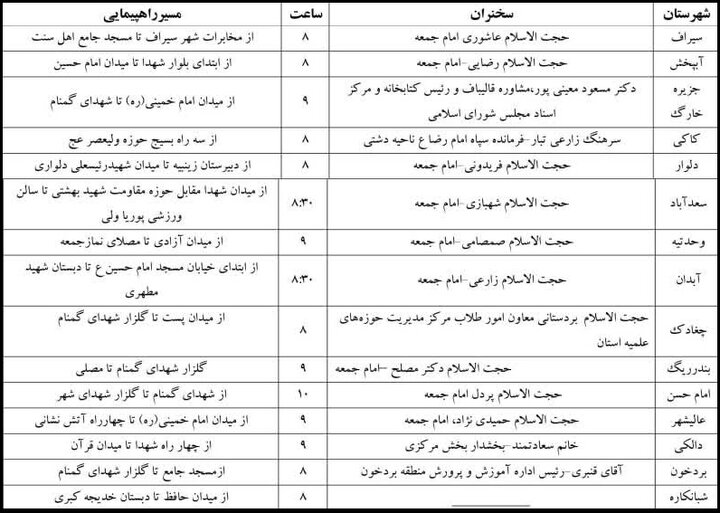 شهرستان سخنران ساعت مسیرراهپیمایی
سیراف حجت الاسلام عاشوری امام جمعه ۸ از مخابرات شهر سیراف تا مسجد جامع اهل سنت
آبپخش حجت الاسلام رضایی-امام جمعه ۸ از ابتدای بلوار شهدا تا میدان امام حسین
جزیره خارگ دکتر مسعود معینی پور،مشاوره قالیباف و رئیس کتابخانه و مرکز اسناد مجلس شورای اسلامی ۹ از میدان امام خمینی(ره) تا شهدای گمنام
کاکی سرهنگ زارعی تبار-فرمانده سپاه امام رضا ع ناحیه دشتی ۸ از سه راه بسیج حوزه ولیعصر عج
دلوار حجت الاسلام فریدونی-امام جمعه ۸ از دبیرستان زینبیه تا میدان شهیدرئیسعلی دلواری
سعدآباد حجت الاسلام شهبازی-امام جمعه ۸:۳۰ از میدان شهدا مقابل حوزه مقاومت شهید بهشتی تا سالن ورزشی پوریا ولی
وحدتیه حجت الاسلام صمصامی-امام جمعه ۹ از میدان آزادی تا مصلای نمازجمعه
آبدان حجت الاسلام زارعی-امام جمعه ۸:۳۰ از ابتدای خیابان مسجد امام حسین ع تا دبستان شهید مطهری
چغادک حجت الاسلام بردستانی معاون امور طلاب مرکز مدیریت حوزه‌های علمیه استان ۸ از میدان پست تا گلزار شهدای گمنام
بندرریگ حجت الاسلام دکتر مصلح –امام جمعه ۹ گلزار شهدای گمنام تا مصلی
امام حسن حجت الاسلام پردل امام جمعه ۱۰ از شهدای گمنام تا گلزار شهدای شهر
عالیشهر حجت الاسلام حمیدی نژاد، امام جمعه ۹ از میدان امام خمینی(ره) تا چهارراه آتش نشانی
دالکی خانم سعادتمند-بخشدار بخش مرکزی ۹ از چهار راه شهدا تا میدان قرآن
بردخون آقای قنبری-رئیس اداره آموزش و پرورش منطقه بردخون ۸ ازمسجد جامع تا گلزار شهدای گمنام
شبانکاره ۸ از میدان حافظ تا دبستان خدیجه کبری